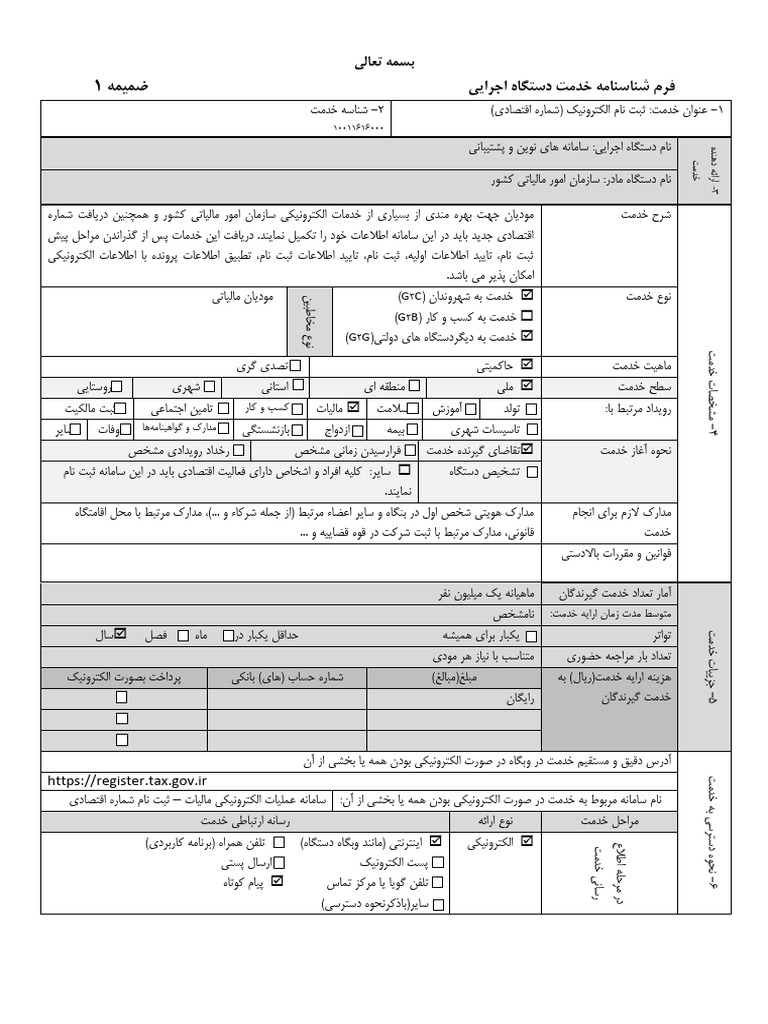 بسمه تعالی
فرم شناسنامه خدمت دستگاه اجرایی ضمیمه ۱
۱- عنوان خدمت: ثبت نام الکترونیک (شماره اقتصادی)
۲- شناسه خدمت
۱۰۰۱۱۶۱۶۰۰۰
۳- ارائه دهنده خدمت
نام دستگاه اجرایی: سامانه های نوین و پشتیبانی
نام دستگاه مادر: سازمان امور مالیاتی کشور
۴- مشخصات خدمت
شرح خدمت
مودیان جهت بهره مندی از بسیاری از خدمات الکترونیکی سازمان امور مالیاتی کشور و همچنین دریافت شماره
اقتصادی جدید باید در این سامانه اطلاعات خود را تکمیل نمایند. دریافت این خدمات پس از گذراندن مراحل پیش
ثبت نام، تایید اطلاعات اولیه، ثبت نام، تایید اطلاعات ثبت نام، تطبیق اطلاعات پرونده با اطلاعات الکترونیکی
امکان پذیر می باشد.
نوع خدمت
☑ خدمت به شهروندان (G۲C)
☐ خدمت به کسب و کار (G۲B)
☑ خدمت به دیگردستگاه های دولتی(G۲G)
نوع مخاطبین
مودیان مالیاتی
ماهیت خدمت
☑ حاکمیتی ☐ تصدی گری
سطح خدمت
☑ ملی ☐ منطقه ای ☐ استانی ☐ شهری ☐ روستایی
رویداد مرتبط با:
☐ تولد ☐ آموزش ☐ سلامت ☑ مالیات ☐ کسب و کار ☐ تامین اجتماعی ☐ ثبت مالکیت
☐ تاسیسات شهری ☐ بیمه ☐ ازدواج ☐ بازنشستگی ☐ مدارک و گواهینامه‌ها ☐ وفات ☐ سایر
نحوه آغاز خدمت
☑ تقاضای گیرنده خدمت ☐ فرارسیدن زمانی مشخص ☐ رخداد رویدادی مشخص
☐ تشخیص دستگاه ☐ سایر: کلیه افراد و اشخاص دارای فعالیت اقتصادی باید در این سامانه ثبت نام
نمایند.
مدارک لازم برای انجام
خدمت
مدارک هویتی شخص اول در بنگاه و سایر اعضاء مرتبط (از جمله شرکاء و ...)، مدارک مرتبط با محل اقامتگاه
قانونی، مدارک مرتبط با ثبت شرکت در قوه قضاییه و ...
قوانین و مقررات بالادستی
۵- جزییات خدمت
آمار تعداد خدمت گیرندگان
ماهیانه یک میلیون نفر
متوسط مدت زمان ارایه خدمت:
نامشخص
تواتر
☐ یکبار برای همیشه حداقل یکبار در ☐ ماه ☐ فصل ☑ سال
تعداد بار مراجعه حضوری
متناسب با نیاز هر مودی
هزینه ارایه خدمت(ریال) به
خدمت گیرندگان
مبلغ(مبالغ) شماره حساب (های) بانکی پرداخت بصورت الکترونیک
رایگان ☐
☐
☐
۶- نحوه دسترسی به خدمت
آدرس دقیق و مستقیم خدمت در وبگاه در صورت الکترونیکی بودن همه یا بخشی از آن
https://register.tax.gov.ir
نام سامانه مربوط به خدمت در صورت الکترونیکی بودن همه یا بخشی از آن: سامانه عملیات الکترونیکی مالیات – ثبت نام شماره اقتصادی
مراحل خدمت نوع ارائه رسانه ارتباطی خدمت
در مرحله اطلاع رسانی خدمت
☑ الکترونیکی
☑ اینترنتی (مانند وبگاه دستگاه) ☐ تلفن همراه (برنامه کاربردی)
☐ پست الکترونیک ☐ ارسال پستی
☐ تلفن گویا یا مرکز تماس ☑ پیام کوتاه
☐ سایر(باذکرنحوه دسترسی)